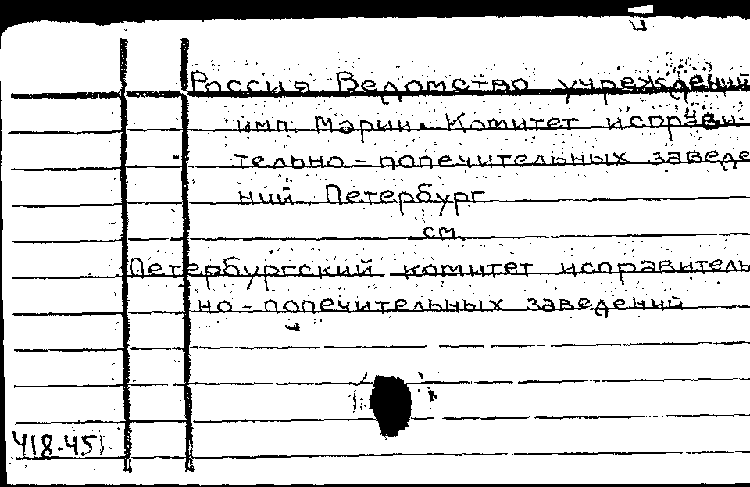 Россия Ведомство учреждений
имп. Марии. Комитет исправи-
тельно-попечительных заведе
ний. Петербург
см.
Петербургский комитет исправитель
но-попечительных заведений
418-451